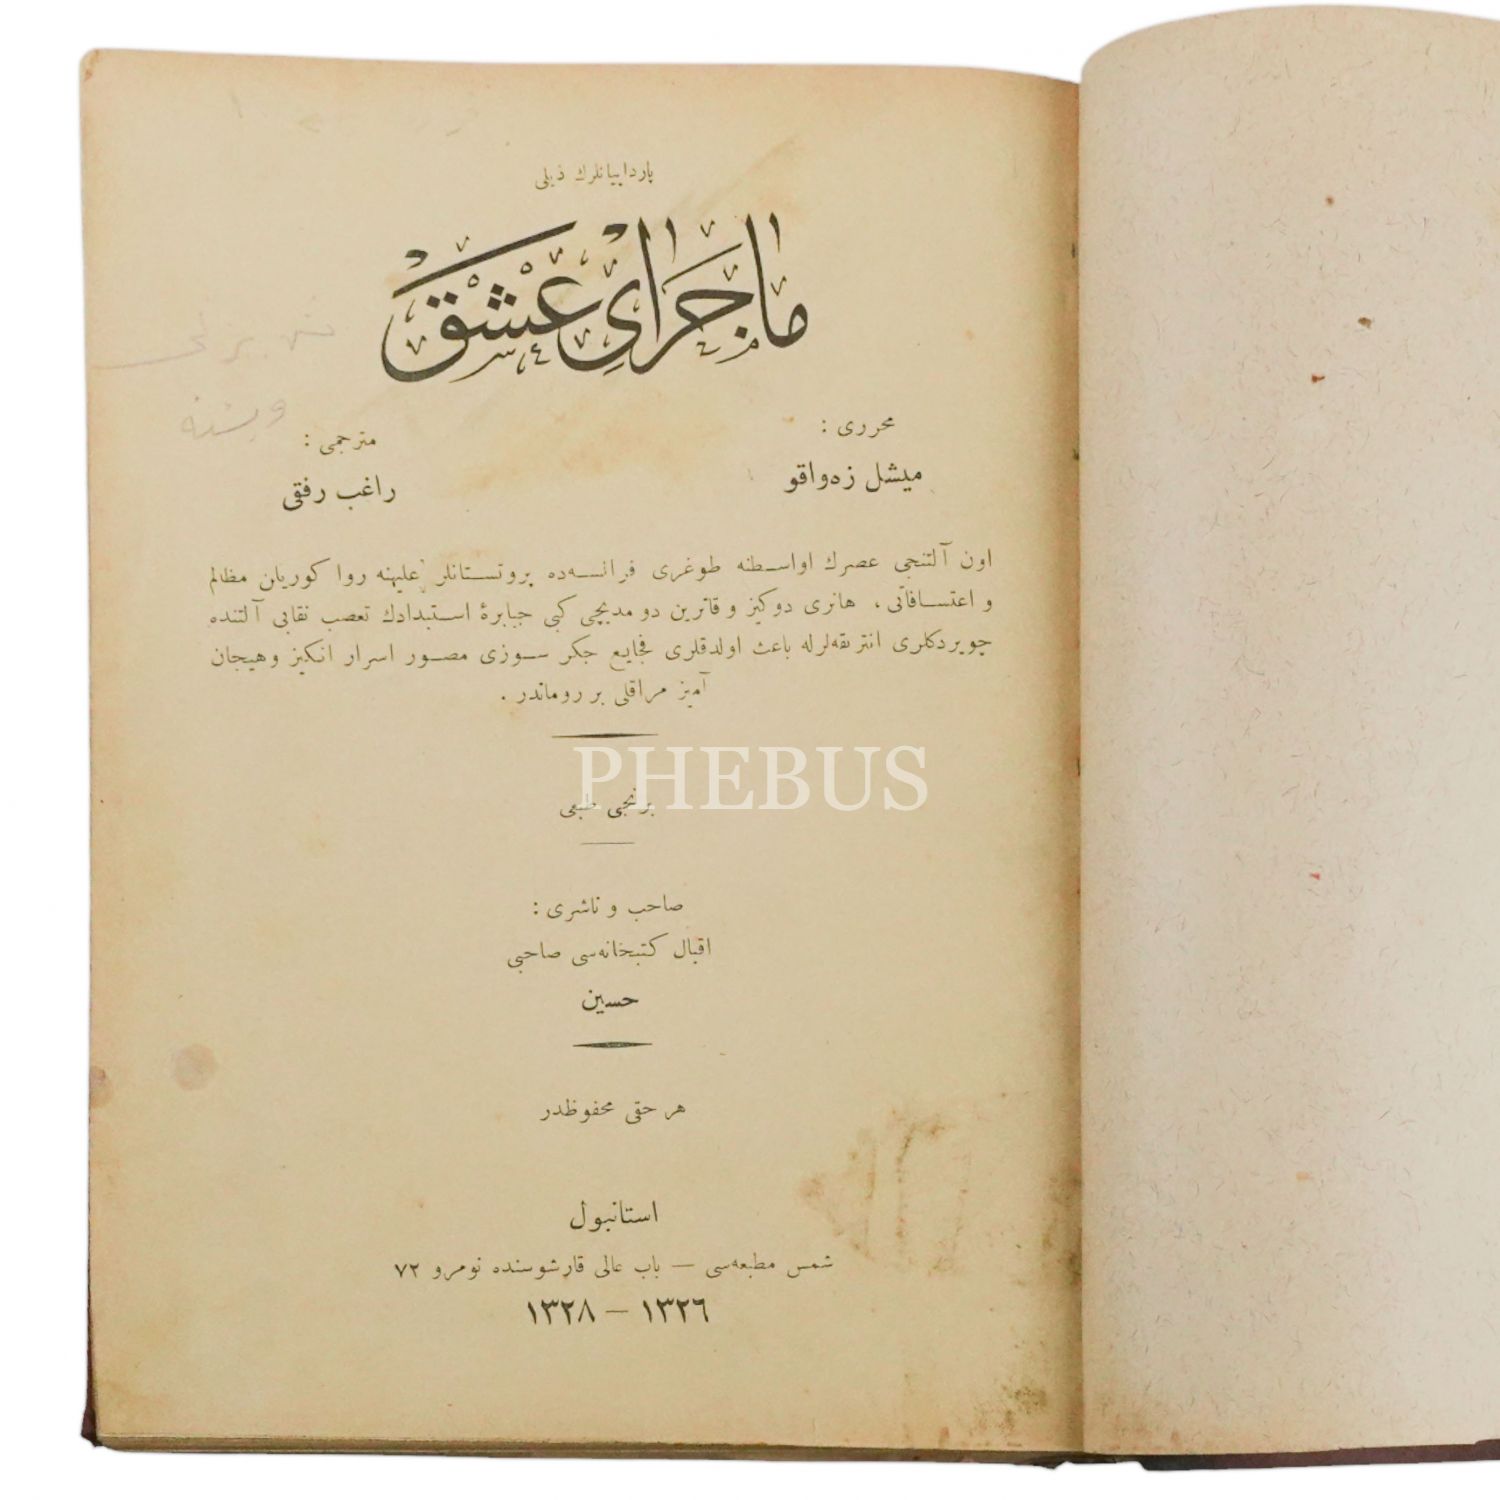 پاردایانلرك ذیلی
ماجرای عشق
محرری :
میشل زه‌واقو
مترجمی :
راغب رفقی
اون آلتنجی عصرك اواسطنه طوغری فرانسه‌ده پروتستانلر علیهنه روا كوریلن مظالم
و اعتسافاتی ، هانری دوكیز و قاترین دو مدیچی كبی جبابرهٔ استبدادك تعصب نقابی آلتنده
چویردكلری انتریقه‌لرله باعث اولدقلری فجایع جكر سوزی مصور اسرار انكیز وهیجان
آمیز مراقلی بر روماندر .
PHEBUS
برنجی طبعی
صاحب و ناشری :
اقبال كتبخانه‌سی صاحبی
حسین
هر حقی محفوظدر
استانبول
شمس مطبعه‌سی — باب عالی قارشوسنده نومرو ٧٢
١٣٢٦ — ١٣٢٨